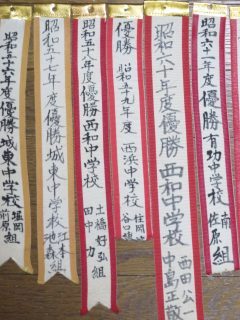 昭和六十一年度優勝有功中学校
南
佐原
組
昭和六十年度優勝西和中学校
西田公一
中島正敏
優勝
昭和五十九年度
西浜中学校
住岡
谷口
昭和五十八年度優勝西和中学校
土橋好弘
田中力
組
昭和五十七年度優勝城東中学校
江本
池森
組
昭和五十六年度優勝城東中学校
堀岡
前原
組